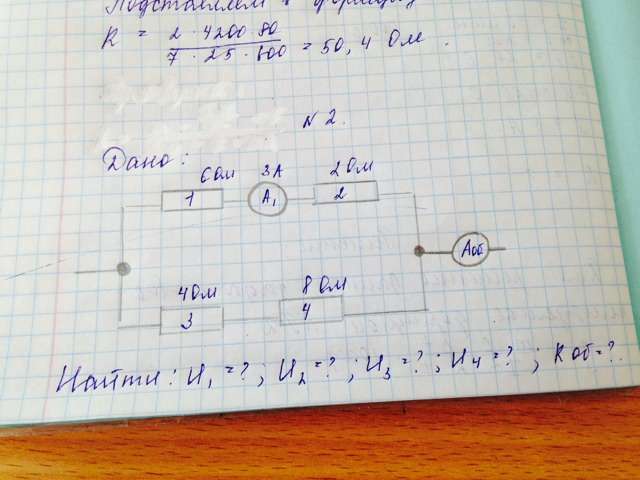 Подставляем в формулу
R = 2 · 4200 80 / 7 · 25 · 600 = 50,4 Ом.
N2.
Дано:
6 Ом 3А 2 Ом
1 А₁ 2
Аоб
4 Ом 8 Ом
3 4
Найти: U₁ = ?; U₂ = ?; U₃ = ?; U₄ = ?; Rоб = ?